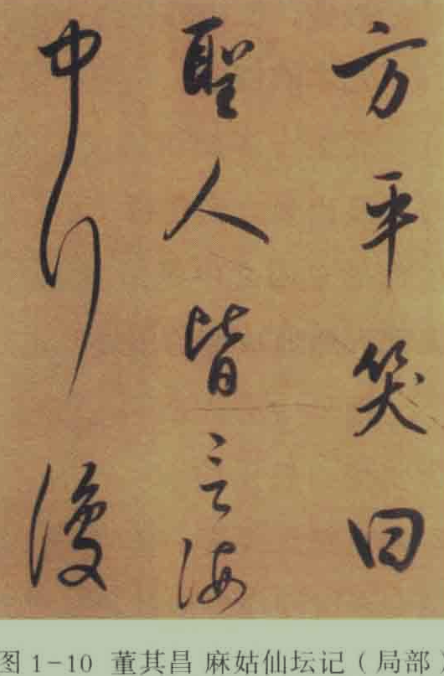 方平笑曰
聖人皆言海
中行復
图1-10 董其昌 麻姑仙坛记（局部）